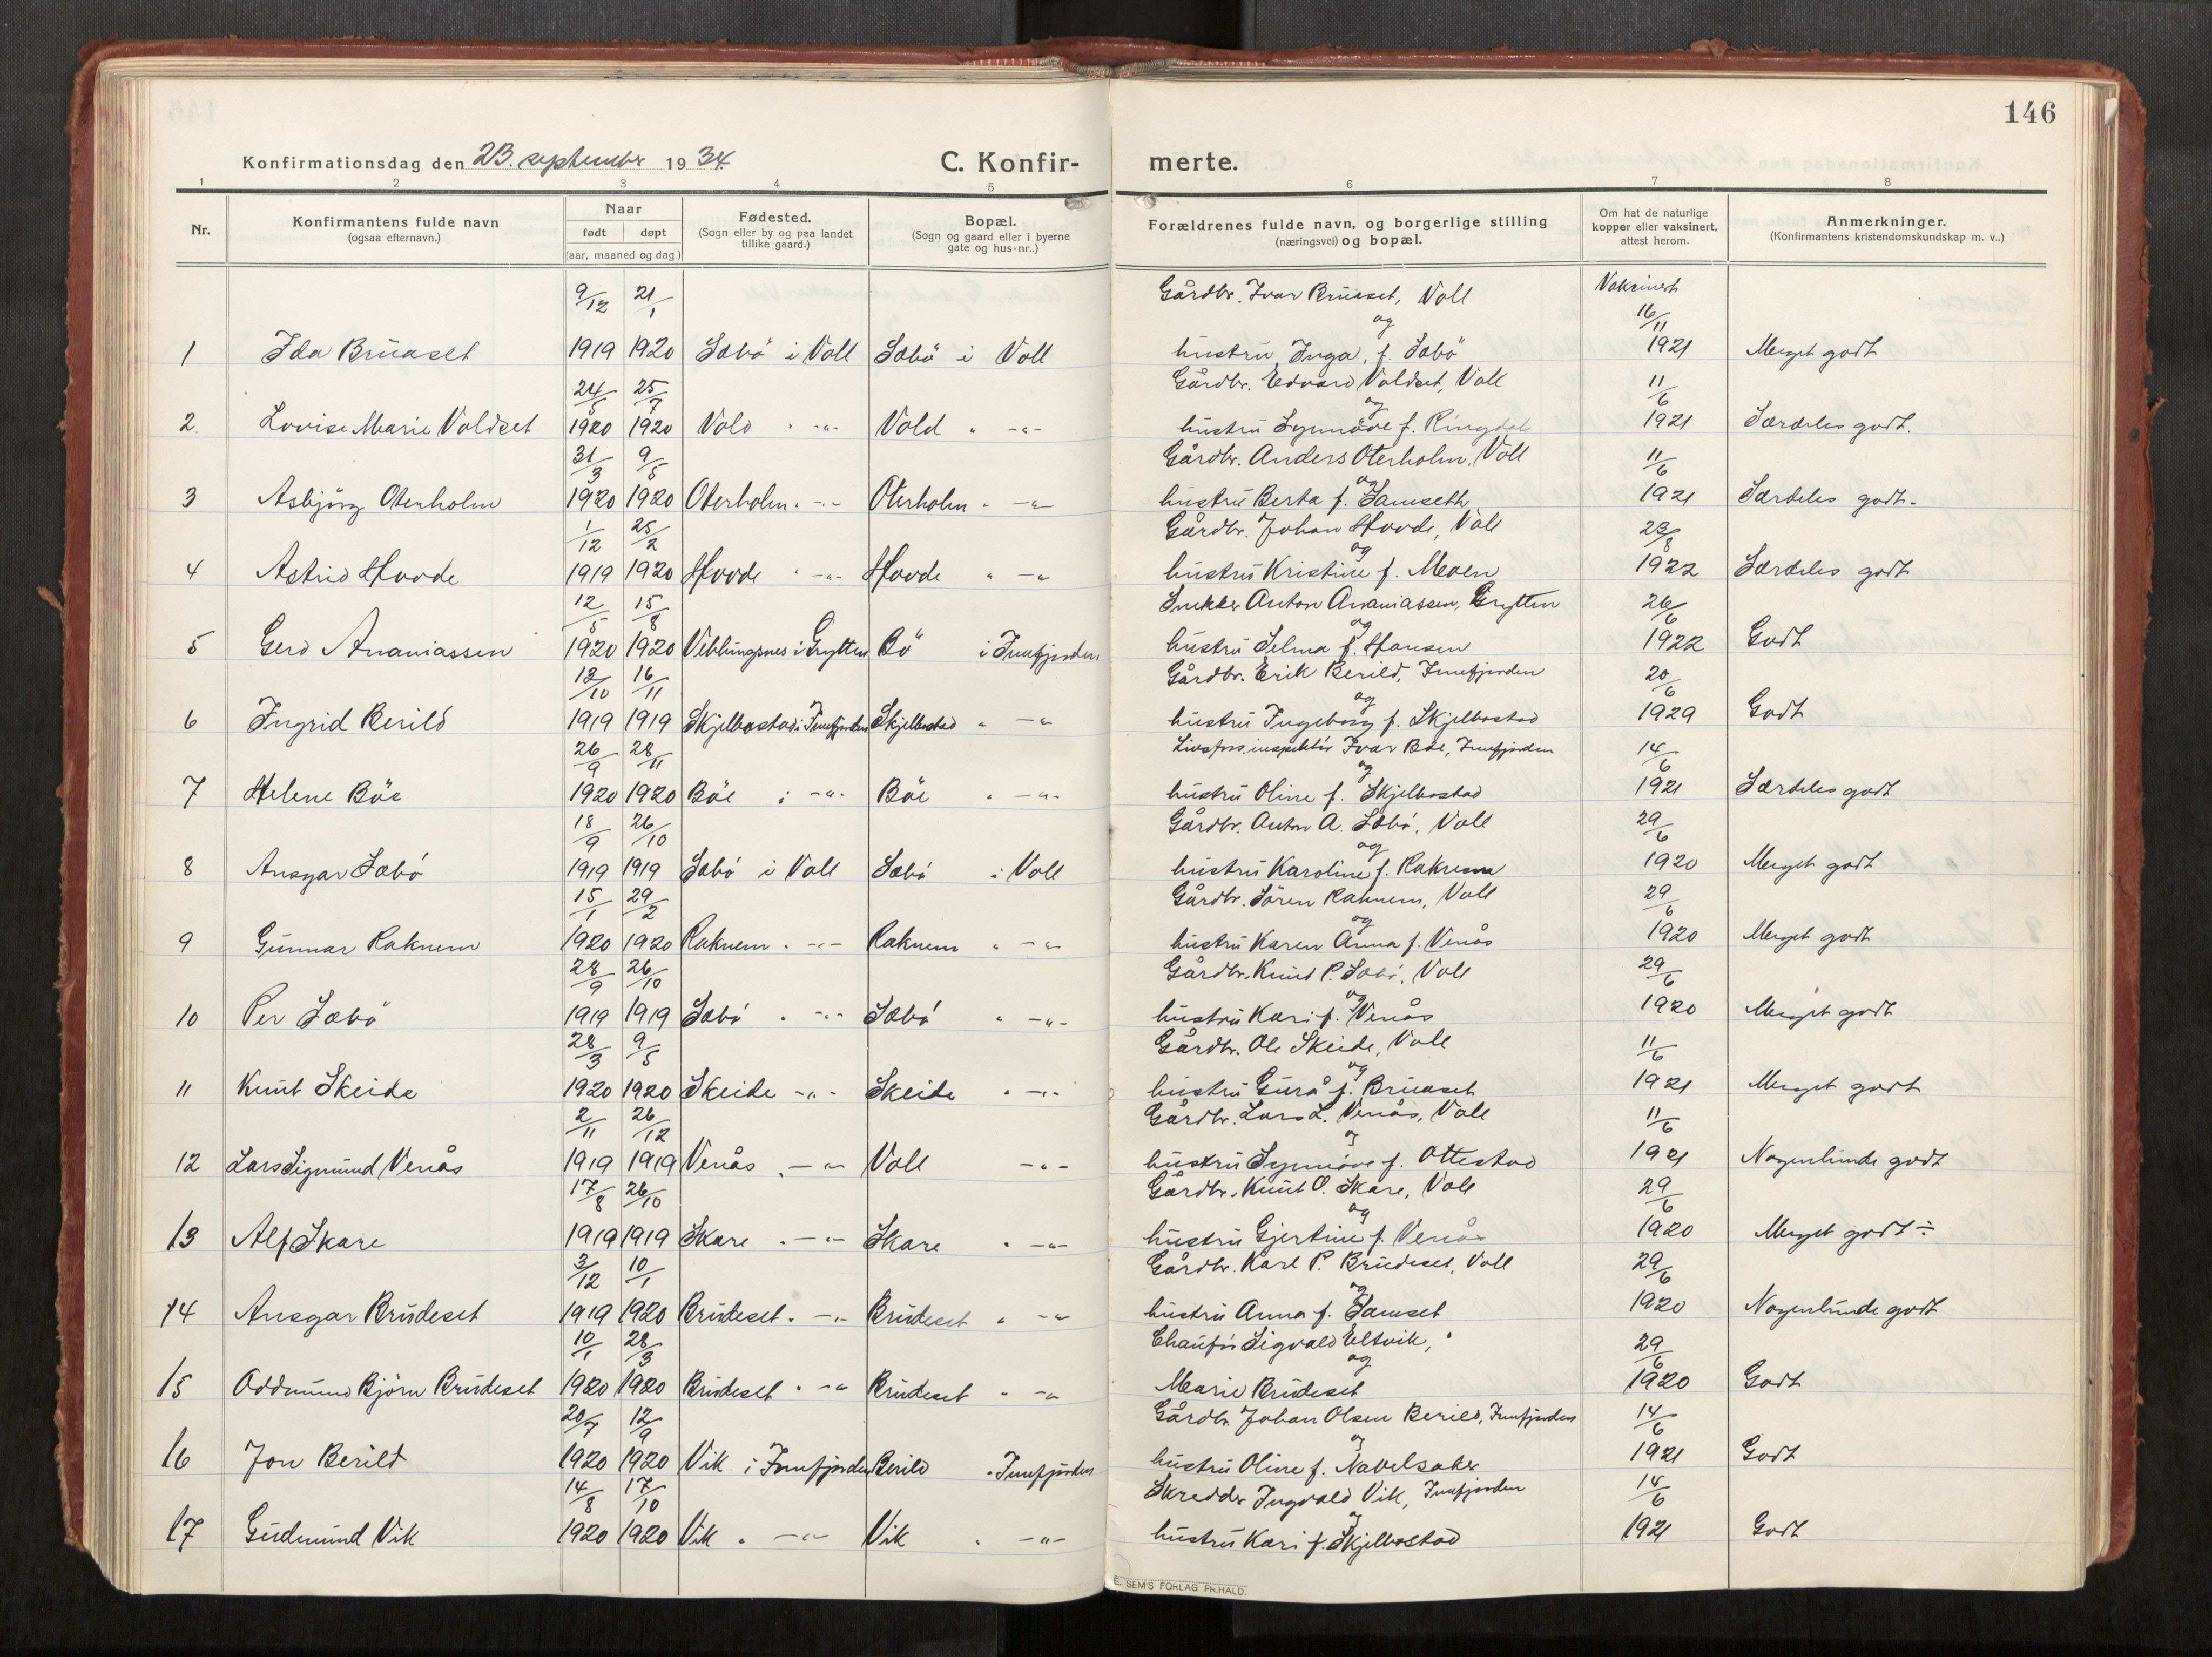 146
Konfirmationsdag den 23. septembr 1934.
C. Konfir-
merte.
1 2 3 4 5 6 7 8
Nr.
Konfirmantens fulde navn
(ogsaa efternavn.)
Naar
født døpt
(aar, maaned og dag)
Fødested.
(Sogn eller by og paa landet
tillike gaard.)
Bopæl.
(Sogn og gaard eller i byerne
gate og hus-nr..)
Forældrenes fulde navn, og borgerlige stilling
(næringsvei) og bopæl.
Om hat de naturlige
kopper eller vaksinert,
attest herom.
Anmerkninger.
(Konfirmantens kristendomskundskap m. v..)
9/12 21/1 Gårdbr. Ivar Brüaset, Voll Vaksinert 16/11
og
1 Ida Brüaset 1919 1920 Sæbö i Voll Sæbö i Voll hustrü Inga, f. Sæbö 1921 Meget godt
24/5 25/7 Gårdbr. Edvard Voldset, Voll 11/6
og
2. Lovise Marie Voldset 1920 1920 Vold " -"- Vold " -"- hustrü Synnöve f. Ringdal 1921 Særdeles godt.
31/3 9/5 Gårdbr. Anders Oterholm, Voll 11/6
og
3 Asbjörg Oterholm 1920 1920 Oterholm " -"- Oterholm " -"- hustrü Berta f. Samseth 1921 Særdeles godt.
1/12 25/2 Gårdbr. Johan Hovde, Voll 23/8
og
4 Astrid Hovde 1919 1920 Hovde " -"- Hovde " -"- hustrü Kristine f. Moen 1922 Særdeles godt
12/5 15/8 Snekker Anton Ananiassen, Grytten 26/6
og
5 Gerd Ananiassen 1920 1920 Veblüngsnes i Grytten Bö i Innfjorden hustrü Selma f. Hansen 1922 Godt
12/10 16/11 Gårdbr. Erik Berild, Innfjorden 20/6
og
6 Ingrid Berild 1919 1919 Skjelbostad i Innfjorden Skjelbostad " -"- hustrü Ingeborg f. Skjelbostad 1929 Godt
26/9 28/11 Livsfors.inspektör Ivar Böe, Innfjorden 14/6
og
7 Helene Böe 1920 1920 Böe i -"- Böe " -"- hustrü Oline f. Skjelbostad 1921 Særdeles godt
18/9 26/10 Gårdbr. Anton A. Sæbö, Voll 29/6
og
8 Ansgar Sæbö 1919 1919 Sæbö i Voll Sæbö i Voll hustrü Karoline f. Raknem 1920 Meget godt
15/1 29/2 Gårdbr. Sören Raknem, Voll 29/6
og
9 Günnar Raknem 1920 1920 Raknem " -"- Raknem " -"- hustrü Karen Anna f. Venås 1920 Meget godt
28/9 26/10 Gårdbr. Knüt P. Sæbö, Voll 29/6
og
10 Per Sæbö 1919 1919 Sæbö " -"- Sæbö " -"- hustrü Kari f. Venås 1920 Meget godt
28/3 9/5 Gårdbr. Ole Skeide, Voll 11/6
og
11 Knüt Skeide 1920 1920 Skeide -"- Skeide " -"- hustrü Gürå f. Brüaset 1921 Meget godt
2/11 26/12 Gårdbr. Lars L. Venås, Voll 11/6
og
12 Lars Sigmünd Venås 1919 1919 Venås " -"- Voll -"- hustrü Synnöve f. Ottestad 1921 Nogenlünde godt
17/8 26/10 Gårdbr. Knüt O. Skare, Voll 29/6
og
13 Alf Skare 1919 1919 Skare " -"- Skare " -"- hustrü Gjertine f. Venås 1920 Meget godt ÷
3/12 10/1 Gårdbr. Karl P. Brüdeset, Voll 29/6
og
14 Ansgar Brüdeset 1919 1920 Brüdeset " -"- Brüdeset " -"- hustrü Anna f. Samset 1920 Nogenlünde godt
10/1 28/3 Chaufför Sigvald Eltvik, " 29/6
og
15 Oddmünd Björn Brüdeset 1920 1920 Brüdeset " -"- Brüdeset " -"- Marie Brüdeset 1920 Godt
20/7 12/9 Gårdbr. Johan Olsen Berild, Innfjorden 14/6
og
16 Jon Berild 1920 1920 Vik i Innfjorden Berild " Innfjorden hustrü Oline f. Navelsaker 1921 Godt
14/8 17/10 Skredder Ingvald Vik, Innfjorden 14/6
og
17 Güdmünd Vik 1920 1920 Vik " -"- Vik " -"- hustrü Kari f. Skjelbostad 1921 Godt
E. SEM'S FORLAG FR.HALD.